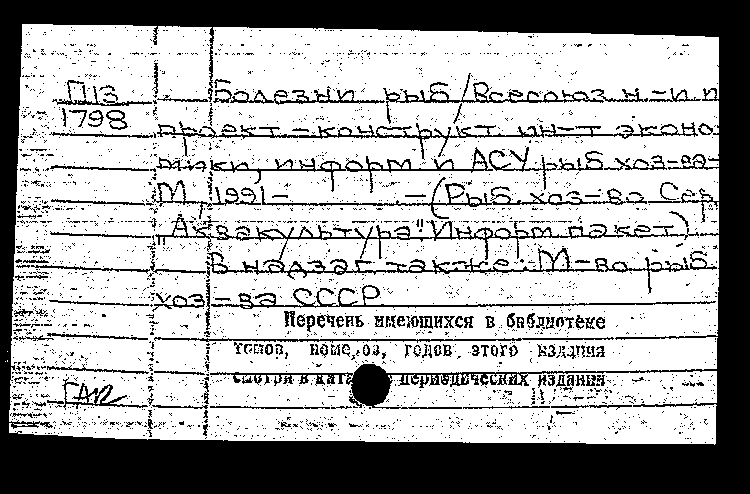 П13
1798
Болезни рыб / Всесоюз. н.-и. и
проект.-конструкт. ин-т эконо-
мики, информ. и АСУ рыб. хоз-ва.-
М., 1991- .-(Рыб. хоз-во. Сер.
"Аквакультура". Информ. пакет)
В надзаг. также: М-во рыб.
хоз-ва СССР
Перечень имеющихся в библиотеке
томов, номеров, годов этого издания
смотри в периодических издания